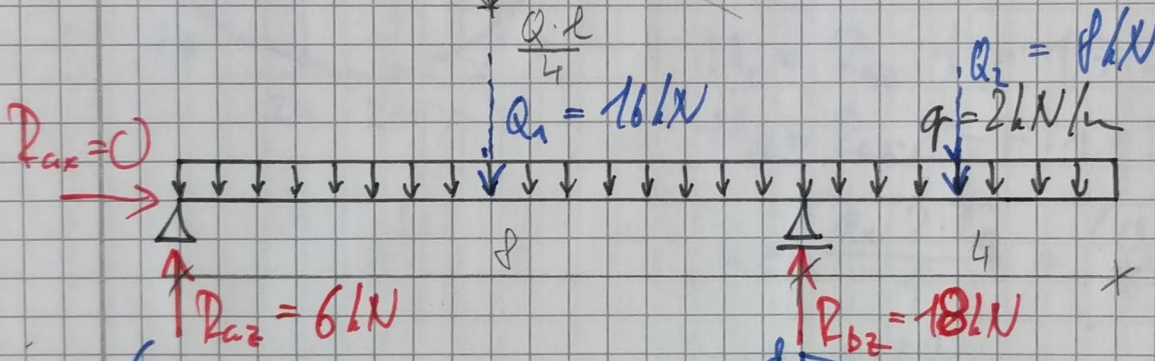 Q·l
4
Q₂ = 8kN
Q₁ = 16kN
q = 2kN/m
Rax = 0
8
4
Raz = 6kN
Rbz = 18kN